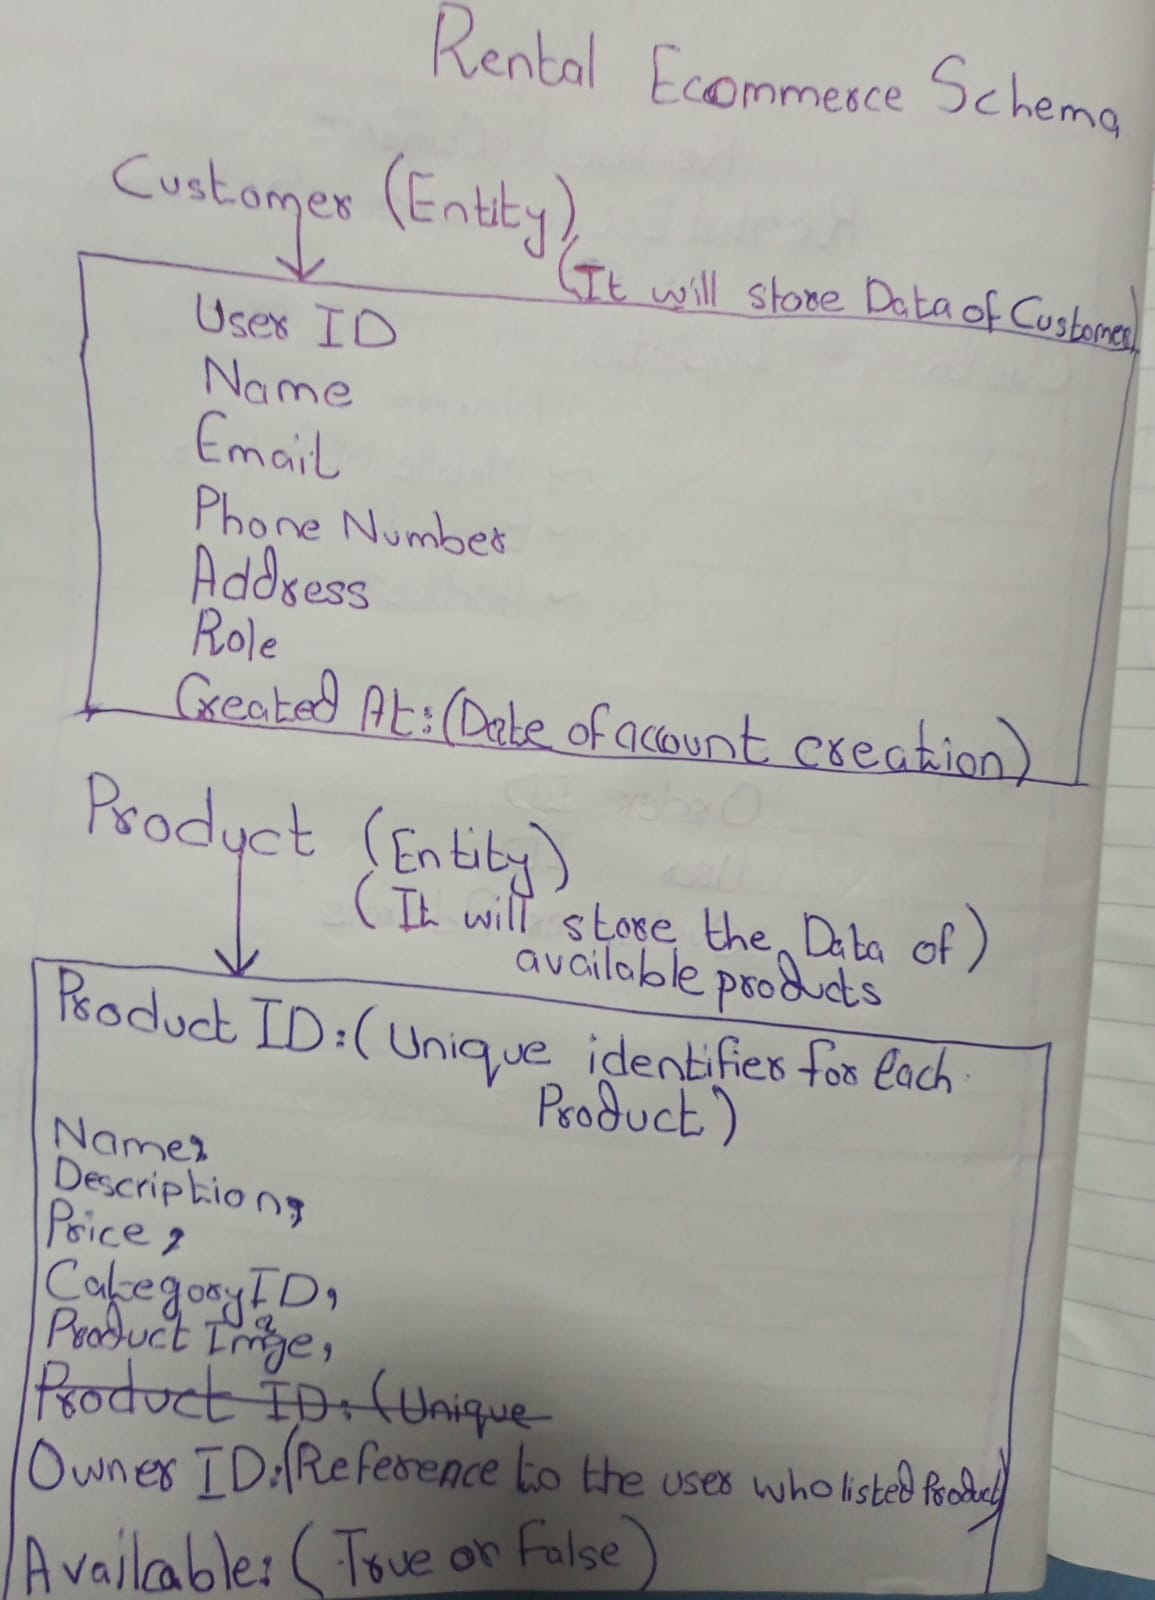 Rental Ecommerce Schema
Customer (Entity)
(It will store Data of Customer)
User ID
Name
Email
Phone Number
Address
Role
Created At: (Date of account creation)
Product (Entity)
(It will store the Data of)
available products
Product ID: (Unique identifier for Each
Product)
Name,
Description,
Price,
Category ID,
Product Image,
Product ID: (Unique
Owner ID: (Reference to the user who listed Product)
Available: (True or False)